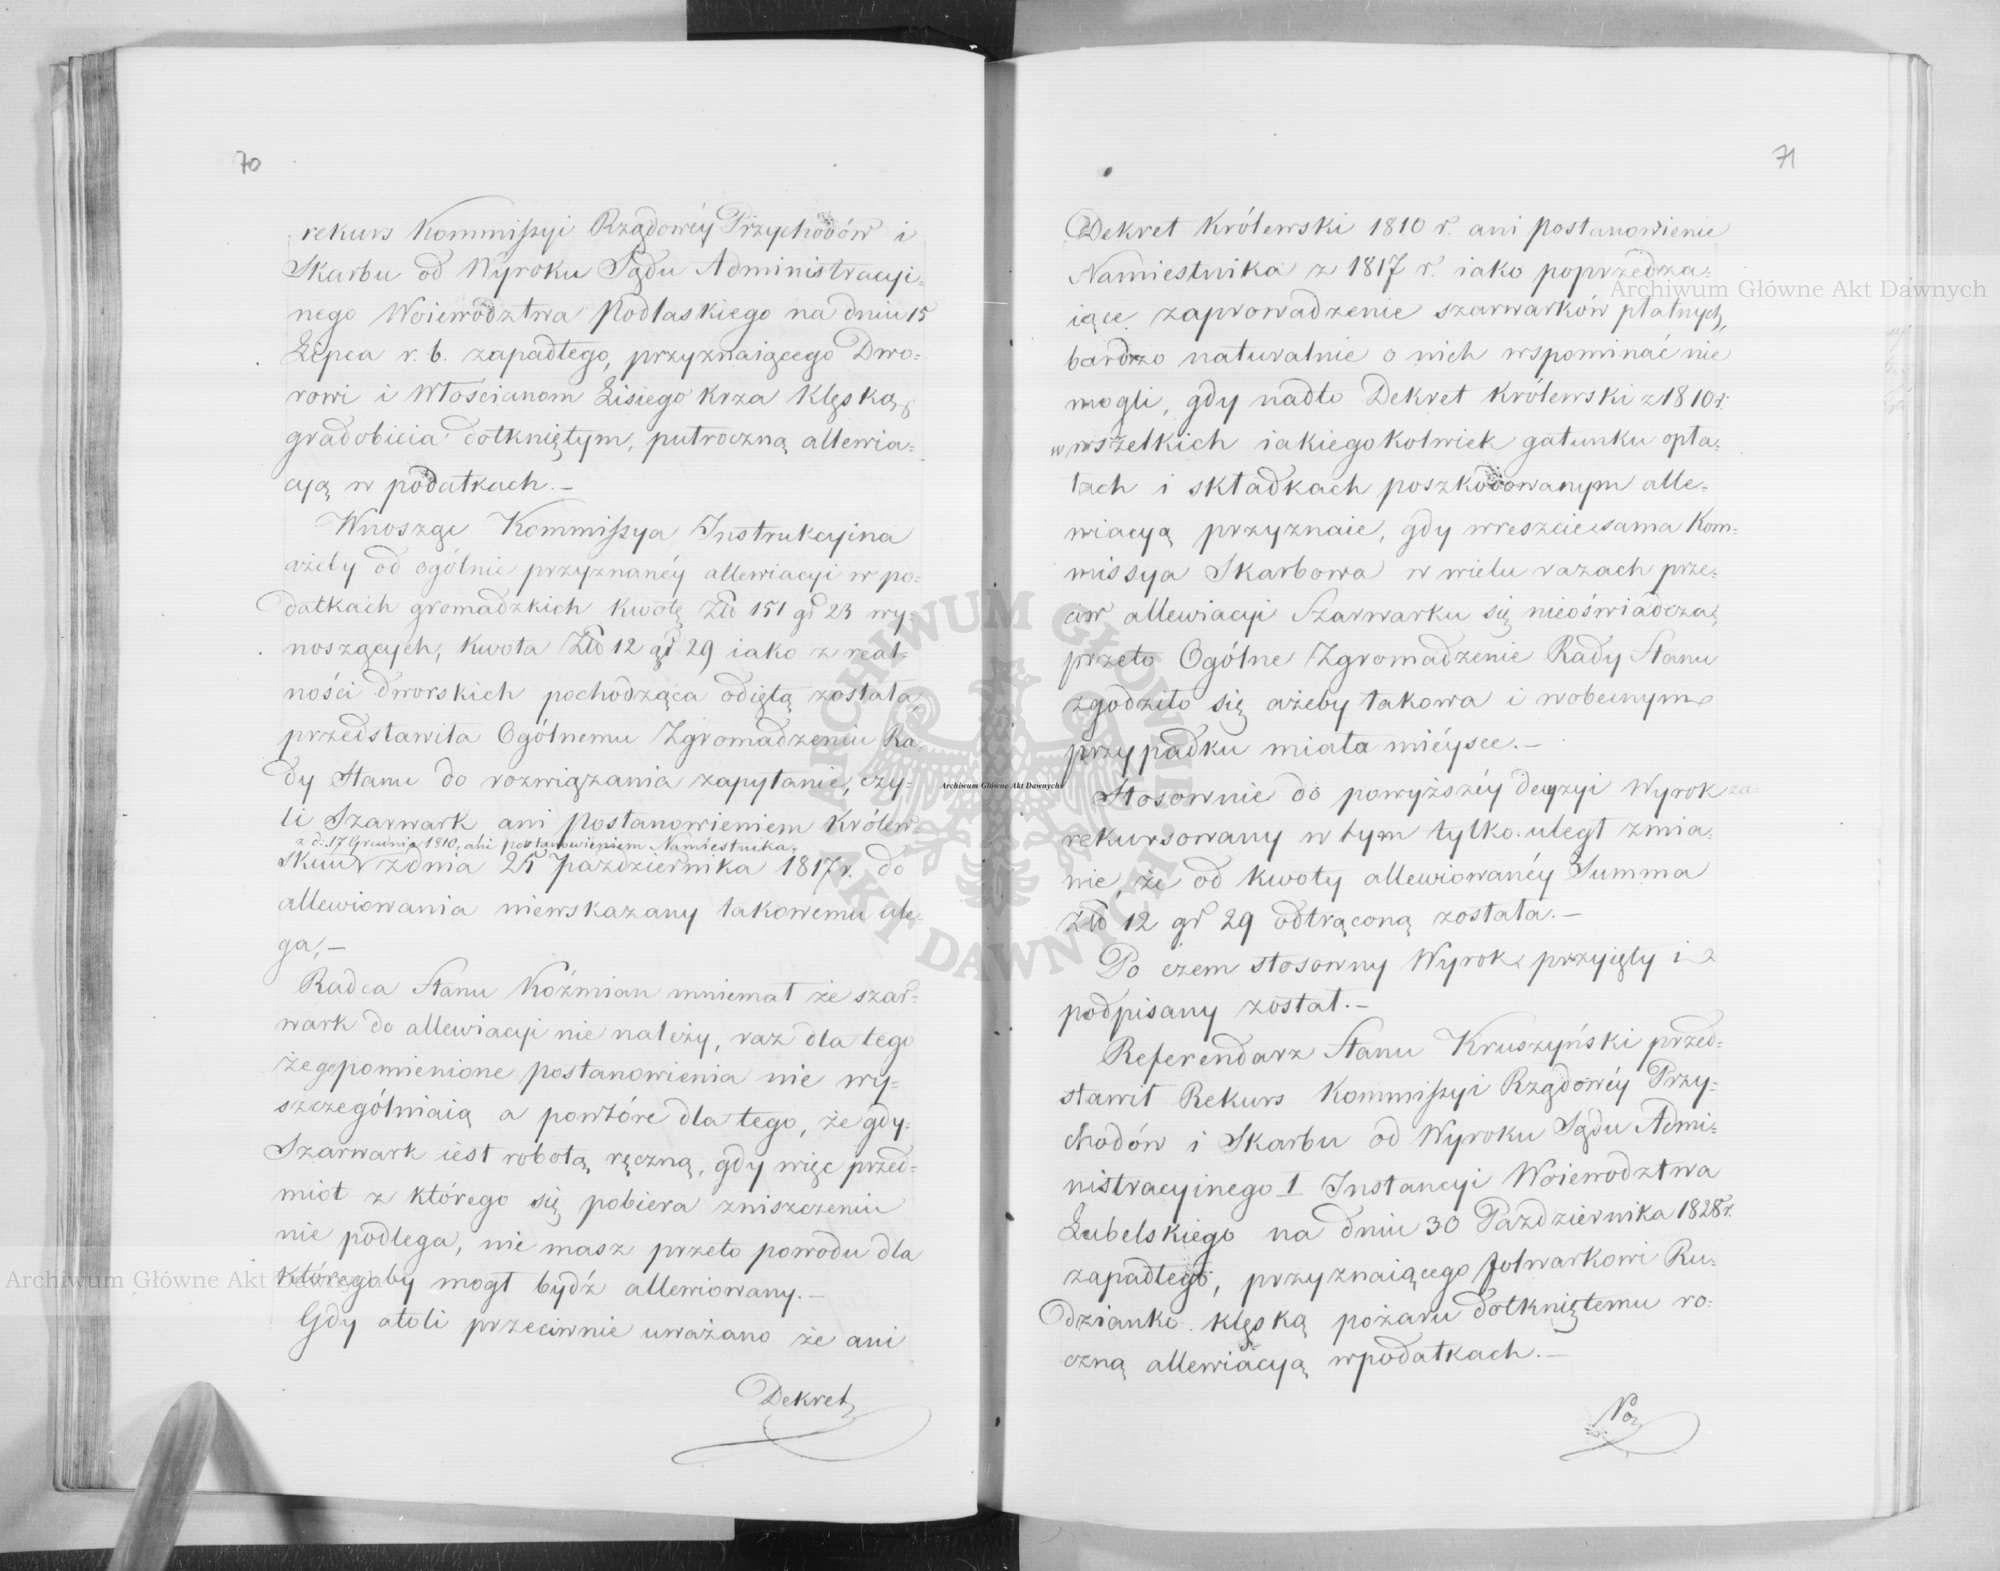 70
rekurs Kommissyi Rządowéy Przychodów i
Skarbu od Wyroku Sądu Administracyi-
nego Woiewództwa Podlaskiego na dniu 15
Lipca r. b. zapadłego, przyznaiącego Dwo-
rowi i Włościanom Lisiego krza Klęską
gradobicia dotkniętym, półroczną allewia-
cyą w podatkach.—
Wnosząc Kommissya Instrukcyina
ażeby od ogólnie przyznanéy allewiacyi w po-
datkach gromadzkich kwotę Złł 151 gr 23 wy-
noszących, kwota Złł 12 gr 29 iako z real-
ności dworskich pochodząca odiętą została,
przedstawiła Ogólnemu Zgromadzeniu Ra-
dy Stanu do rozwiązania zapytanie, czy-
li Szarwark ani postanowieniem Królew-
z d. 17 Grudnia 1810, ani postanowieniem Namiestnika
skim z dnia 25 Października 1817 r. do
allewiowania niewskazany takowemu ule-
ga,—
Radca Stanu Koźmian mniemał że szar-
wark do allewiacyi nie należy, raz dla tego
że pomienione postanowienia nie wy-
szczególniaią a powtóre dla tego, że gdy
Szarwark iest robotą ręczną, gdy więc przed-
miot z którego się pobiera zniszczeniu
nie podlega, nie masz przeto powodu dla
któregoby mogł bydź allewiowany.—
Gdy atoli przeciwnie uważano że ani
Dekret
71
Dekret Królewski 1810 r. ani postanowienie
Namiestnika z 1817 r. iako poprzedza-
iące zaprowadzenie szarwarków płatnych,
bardzo naturalnie o nich wspominać nie
mogli, gdy nadto Dekret Królewski z 1810 r.
w wszelkich iakiegokolwiek gatunku opła-
tach i składkach poszkodowanym alle-
wiacyą przyznaie, gdy wreszcie sama Kom-
missya Skarbowa w wielu razach prze-
ciw allewiacyi Szarwarku się nieoświadcza,
przeto Ogólne Zgromadzenie Rady Stanu
zgodziło się ażeby takowa i w obecnym
przypadku miała miéysce.—
Stosownie do powyższéy decyzyi Wyrok za-
rekursowany w tym tylko uległ zmia-
nie, że od kwoty allewiowanéy Summa
Złł 12 gr 29 odtrąconą została.—
Po czem stosowny Wyrok przyięty i
podpisany został.—
Referendarz Stanu Kruszyński przed-
stawił Rekurs Kommissyi Rządowéy Przy-
chodów i Skarbu od Wyroku Sądu Admi-
nistracyinego I Instancyi Woiewodztwa
Lubelskiego na dniu 30 Pazdziernika 1828 r.
zapadłego, przyznaiącego folwarkowi Ru-
dzianko klęską pożaru dotkniętemu ro-
czną allewiacyą w podatkach.—
Archiwum Główne Akt Dawnych
Archiwum Główne Akt Dawnych
Archiwum Główne Akt Dawnych
ARCHIWUM GŁÓWNE AKT DAWNYCH